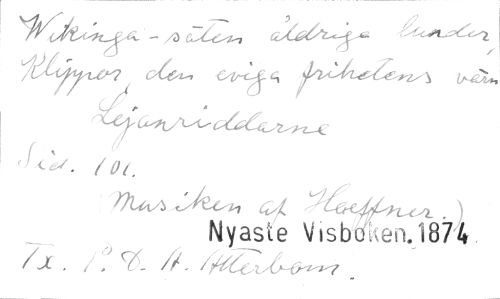 Wikinga-säten åldriga lunder,
Klippor, den eviga frihetens värn
Lejonriddarne
Sid. 101.
(Musiken af Haeffner.)
Nyaste Visboken. 1874
Tx. P. D. A. Atterbom.